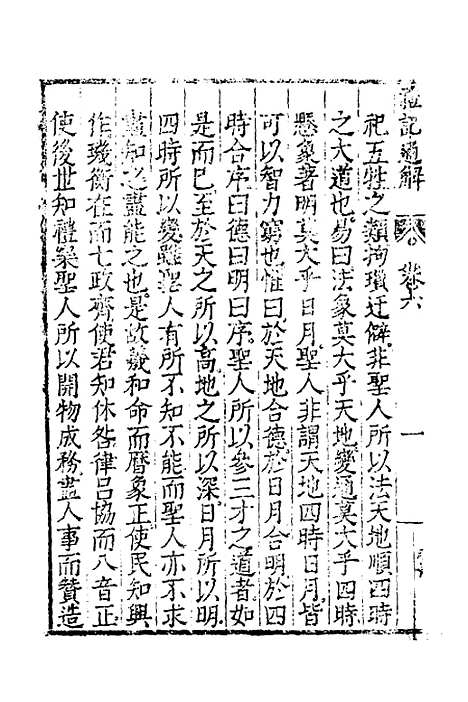 禮記通解
卷六
一
祀五牲之類拘瑣迂僻非聖人所以法天地順四時
之大道也易曰法象莫大乎天地變通莫大乎四時
懸象著明莫大乎日月聖人非謂天地四時日月皆
可以智力窮也惟曰於天地合德於日月合明於四
時合序曰德曰明曰序聖人所以參三才之道者如
是而已至於天之所以高地之所以深日月所以明
四時所以變雖聖人有所不知不能而聖人亦不求
盡知之盡能之也是故羲和命而曆象正使民知興
作璣衡在而七政齊使君知休咎律呂協而八音正
使後世知禮樂聖人所以開物成務盡人事而贊造